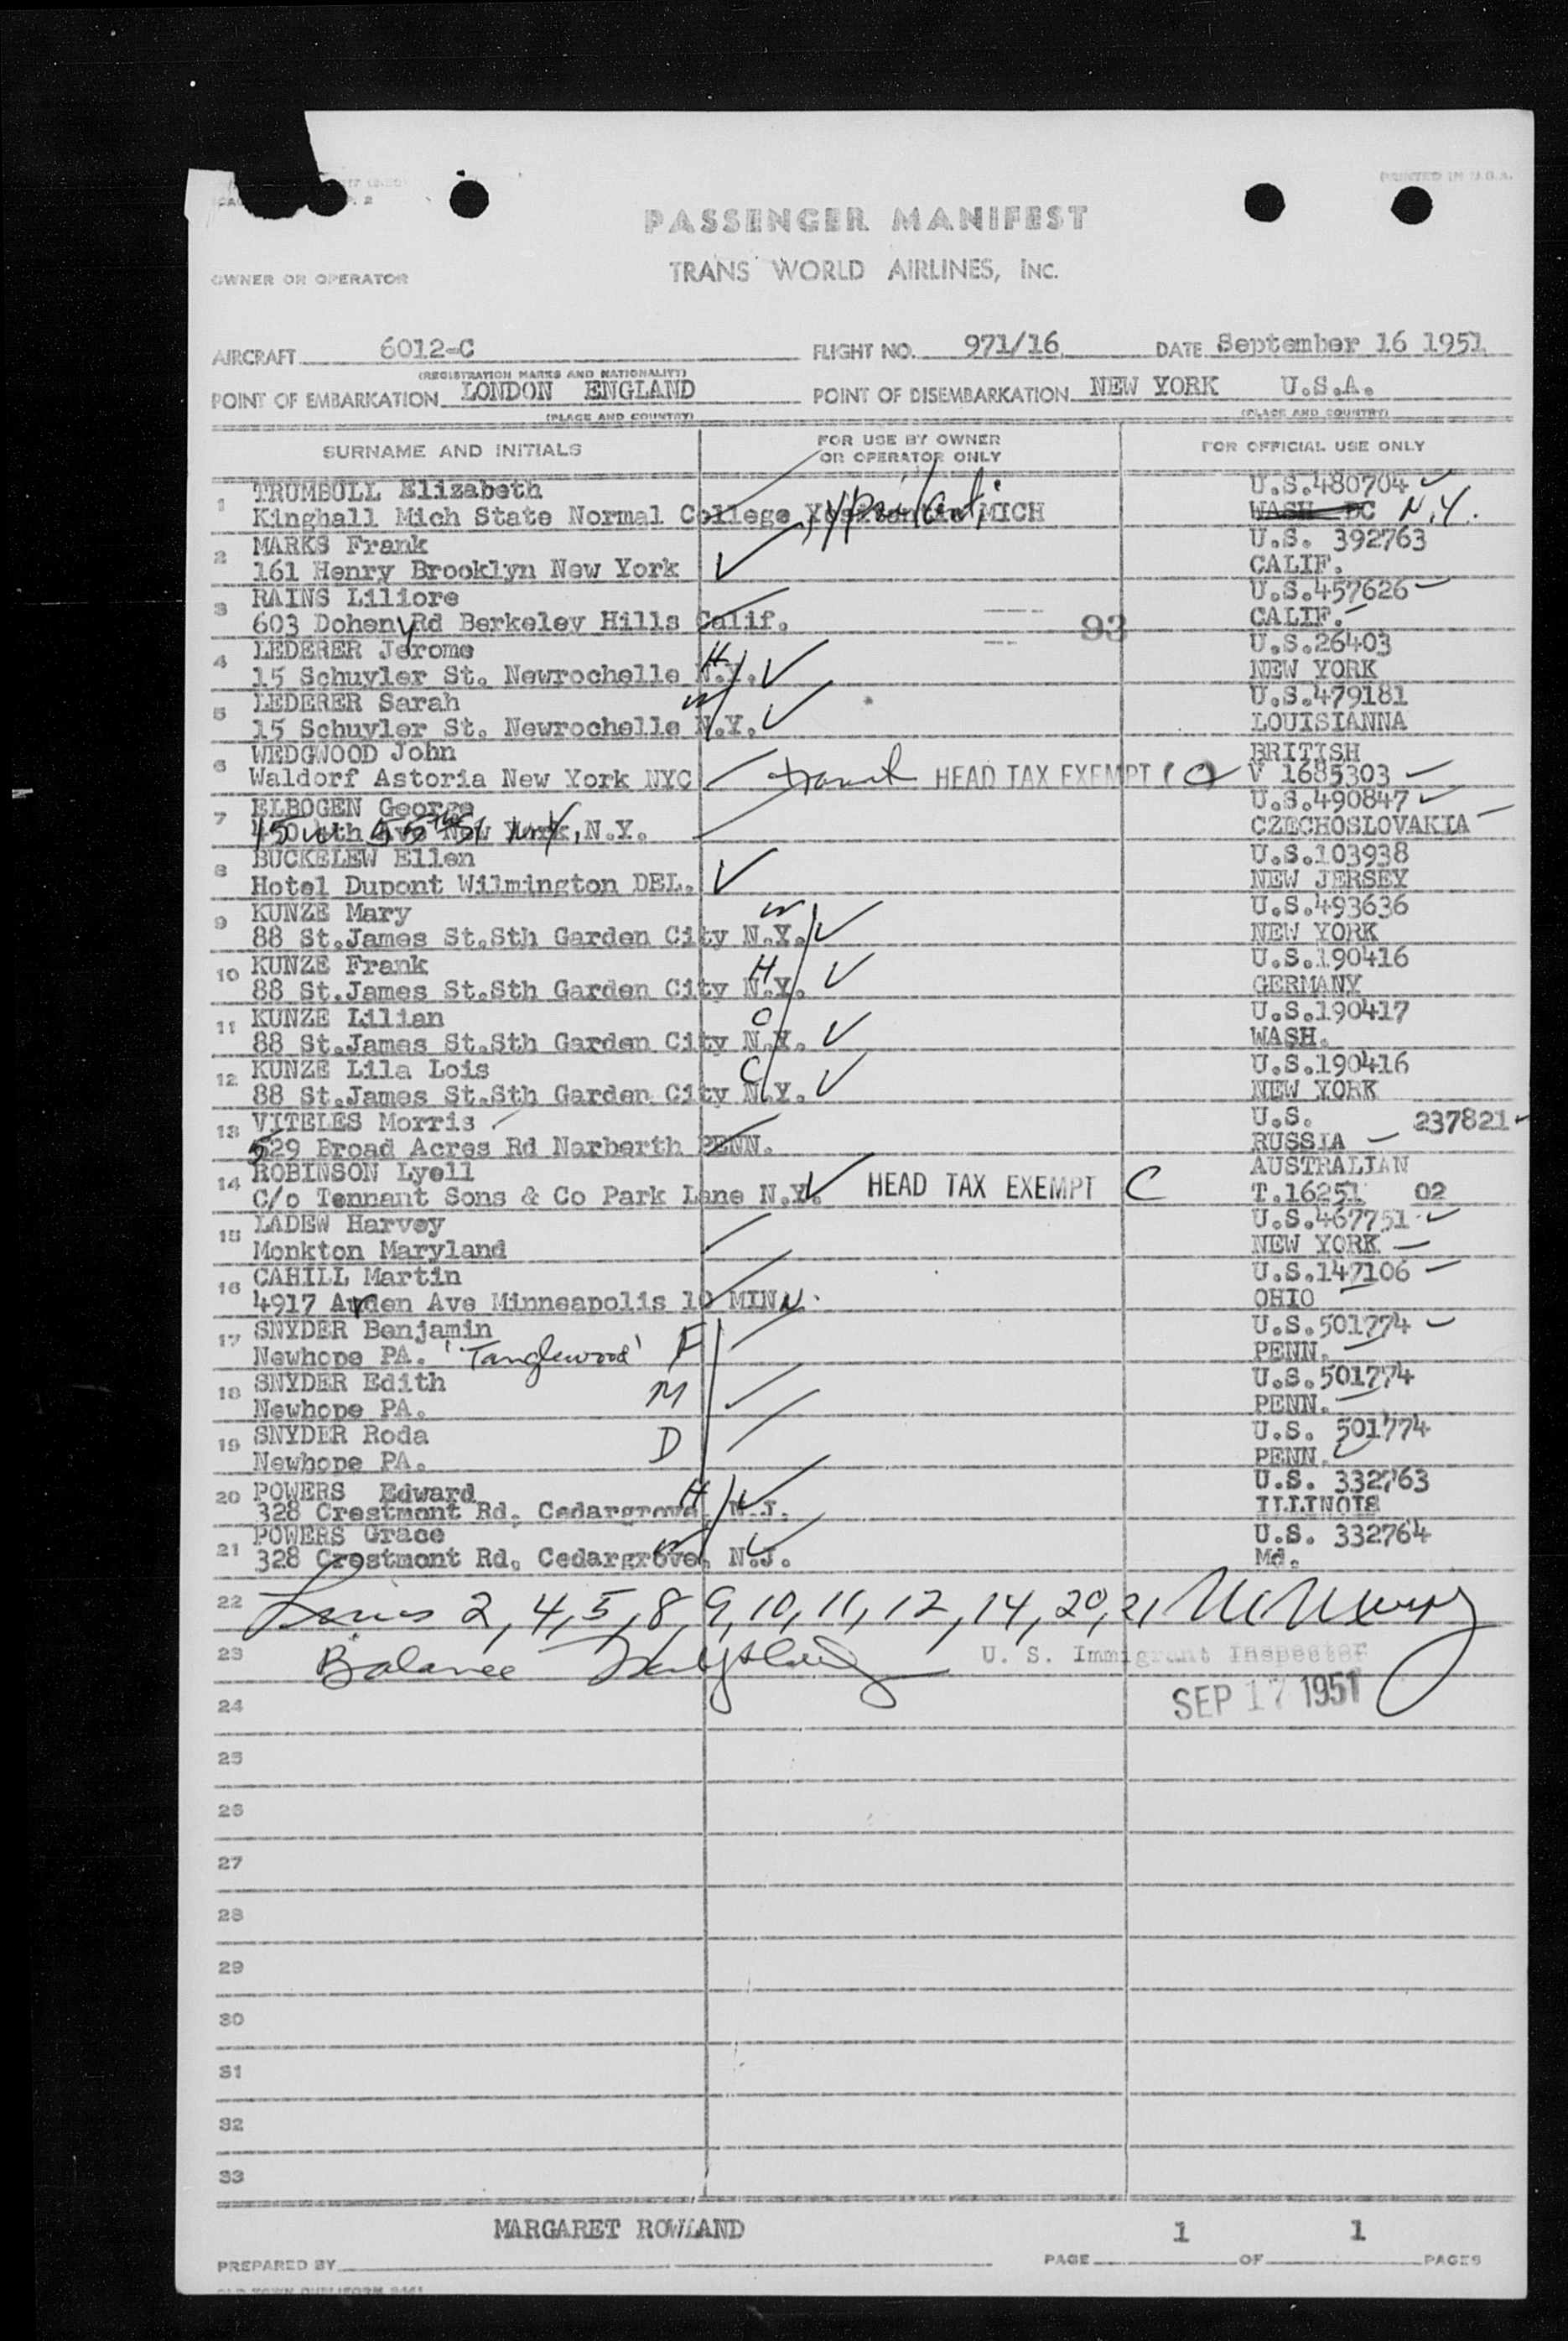 PRINTED IN U.S.A.
PASSENGER MANIFEST
OWNER OR OPERATOR
TRANS WORLD AIRLINES, INC.
AIRCRAFT 6012-C FLIGHT NO. 971/16 DATE September 16 1951
(REGISTRATION MARKS AND NATIONALITY)
POINT OF EMBARKATION LONDON ENGLAND POINT OF DISEMBARKATION NEW YORK U.S.A.
(PLACE AND COUNTRY) (PLACE AND COUNTRY)
SURNAME AND INITIALS FOR USE BY OWNER OR OPERATOR ONLY FOR OFFICIAL USE ONLY
1 TRUMBULL Elizabeth U.S.480704
Kinghall Mich State Normal College Ypsilanti MICH WASH DC N.Y.
2 MARKS Frank U.S. 392763
161 Henry Brooklyn New York CALIF.
3 RAINS Liliore U.S.457626
603 Doheny Rd Berkeley Hills Calif. 93 CALIF.
4 LEDERER Jerome H U.S.26403
15 Schuyler St. Newrochelle N.Y. NEW YORK
5 LEDERER Sarah W U.S.479181
15 Schuyler St. Newrochelle N.Y. LOUISIANNA
6 WEDGWOOD John BRITISH
Waldorf Astoria New York NYC transit HEAD TAX EXEMPT (C) V 1685303
7 ELBOGEN George U.S.490847
450 W 55th St New York, N.Y. CZECHOSLOVAKIA
8 BUCKELEW Ellen U.S.103938
Hotel Dupont Wilmington DEL. NEW JERSEY
9 KUNZE Mary W U.S.493636
88 St.James St.Sth Garden City N.Y. NEW YORK
10 KUNZE Frank H U.S.190416
88 St.James St.Sth Garden City N.Y. GERMANY
11 KUNZE Lilian C U.S.190417
88 St.James St.Sth Garden City N.Y. WASH.
12 KUNZE Lila Lois C U.S.190416
88 St.James St.Sth Garden City N.Y. NEW YORK
13 VITELES Morris U.S. 237821
529 Broad Acres Rd Narberth PENN. RUSSIA
14 ROBINSON Lyell AUSTRALIAN
C/o Tennant Sons & Co Park Lane N.Y. HEAD TAX EXEMPT C T.16251 02
15 LADEW Harvey U.S.467751
Monkton Maryland NEW YORK
16 CAHILL Martin U.S.147106
4917 Arden Ave Minneapolis 10 MINN. OHIO
17 SNYDER Benjamin F U.S.501774
Newhope PA. 'Tanglewood' PENN.
18 SNYDER Edith M U.S.501774
Newhope PA. PENN.
19 SNYDER Roda D U.S. 501774
Newhope PA. PENN.
20 POWERS Edward H U.S. 332763
328 Crestmont Rd. Cedargrove, N.J. ILLINOIS
21 POWERS Grace W U.S. 332764
328 Crestmont Rd. Cedargrove, N.J. Md.
22 Lines 2, 4, 5, 8, 9, 10, 11, 12, 14, 20, 21
23 Balance U. S. Immigrant Inspector
24 SEP 17 1951
25
26
27
28
29
30
31
32
33
MARGARET ROWLAND 1 1
PREPARED BY PAGE OF PAGES